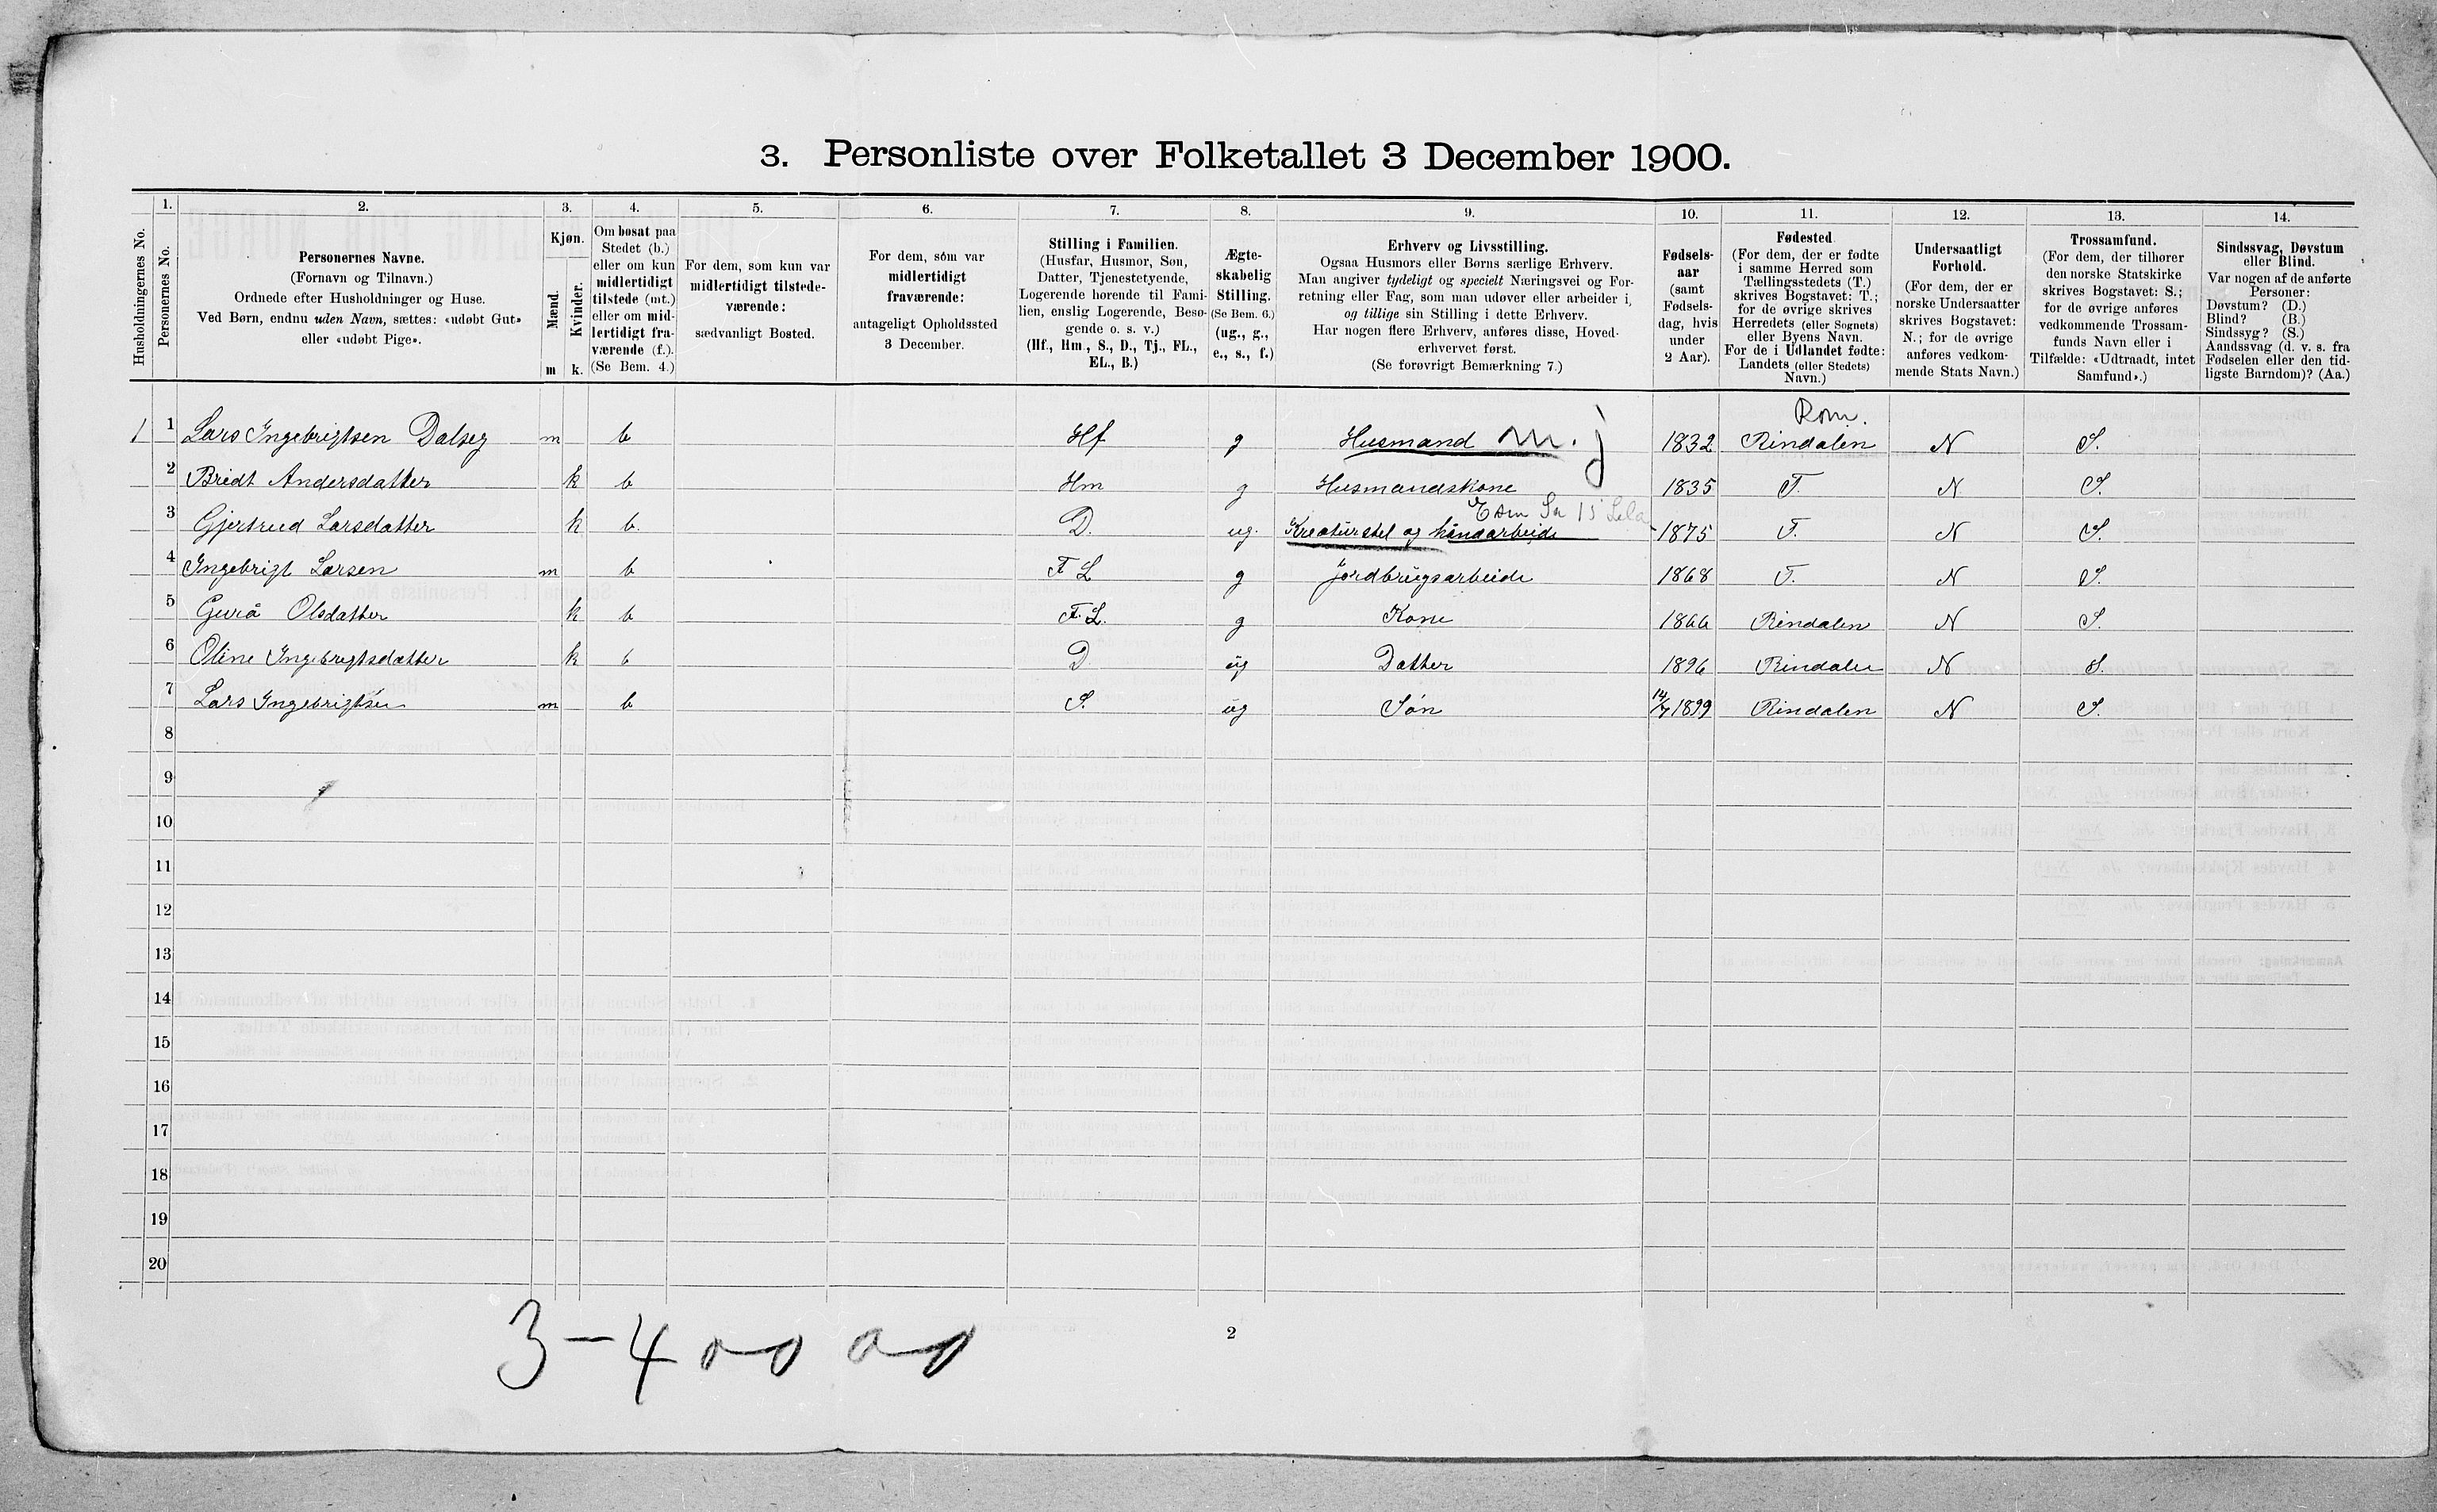 3. Personliste over Folketallet 3 December 1900.
Husholdningernes No.
1.
Personernes No.
2.
Personernes Navne.
(Fornavn og Tilnavn.)
Ordnede efter Husholdninger og Huse.
Ved Børn, endnu uden Navn, sættes: «udøbt Gut»
eller «udøbt Pige».
3.
Kjøn.
Mænd.
Kvinder.
m k.
4.
Om bosat paa
Stedet (b.)
eller om kun
midlertidigt
tilstede (mt.)
eller om mid-
lertidigt fra-
værende (f.).
(Se Bem. 4.)
5.
For dem, som kun var
midlertidigt tilstede-
værende:
sædvanligt Bosted.
6.
For dem, som var
midlertidigt
fraværende:
antageligt Opholdssted
3 December.
7.
Stilling i Familien.
(Husfar, Husmor, Søn,
Datter, Tjenestetyende,
Logerende hørende til Fami-
lien, enslig Logerende, Besø-
gende o. s. v.)
(Hf., Hm., S., D., Tj., FL.,
EL., B.)
8.
Ægte-
skabelig
Stilling.
(Se Bem. 6.)
(ug., g.,
e., s., f.)
9.
Erhverv og Livsstilling.
Ogsaa Husmors eller Børns særlige Erhverv.
Man angiver tydeligt og specielt Næringsvei og For-
retning eller Fag, som man udøver eller arbeider i,
og tillige sin Stilling i dette Erhverv.
Har nogen flere Erhverv, anføres disse, Hoved-
erhvervet først.
(Se forøvrigt Bemærkning 7.)
10.
Fødsels-
aar
(samt
Fødsels-
dag, hvis
under
2 Aar).
11.
Fødested
(For dem, der er fødte
i samme Herred som
Tællingsstedets (T.)
skrives Bogstavet: T.;
for de øvrige skrives
Herredets (eller Sognets)
eller Byens Navn.
For de i Udlandet fødte:
Landets (eller Stedets)
Navn.)
12.
Undersaatligt
Forhold.
(For dem, der er
norske Undersaatter
skrives Bogstavet:
N.; for de øvrige
anføres vedkom-
mende Stats Navn.)
13.
Trossamfund.
(For dem, der tilhører
den norske Statskirke
skrives Bogstavet: S.;
for de øvrige anføres
vedkommende Trossam-
funds Navn eller i
Tilfælde: «Udtraadt, intet
Samfund».)
14.
Sindssvag, Døvstum
eller Blind.
Var nogen af de anførte
Personer:
Døvstum? (D.)
Blind? (B.)
Sindssyg? (S.)
Aandssvag (d. v. s. fra
Fødselen eller den tid-
ligste Barndom)? (Aa.)
Rom.
1 1 Lars Ingebrigtsen Dalseg m b Hf g Husmand m. j 1832 Rindalen N S.
2 Bredt Andersdatter k b Hm g Husmandskone 1835 T. N S.
3 Gjertrud Larsdatter k b. D. ug. Kreaturstel og håndarbeide 1875 T. N S.
4 Ingebrigt Larsen m b FL g Jordbrugsarbeide 1868 T. N S.
5 Gurå Olsdatter k b F.L. g Kone 1866 Rindalen N S.
6 Oline Ingebrigtsdatter k b D ug Datter 1896 Rindalen N S.
7 Lars Ingebrigtsen m b S. ug Søn 14/7 1899 Rindalen N S.
8
9
10
11
12
13
14
15
16
17
18
19
20
2